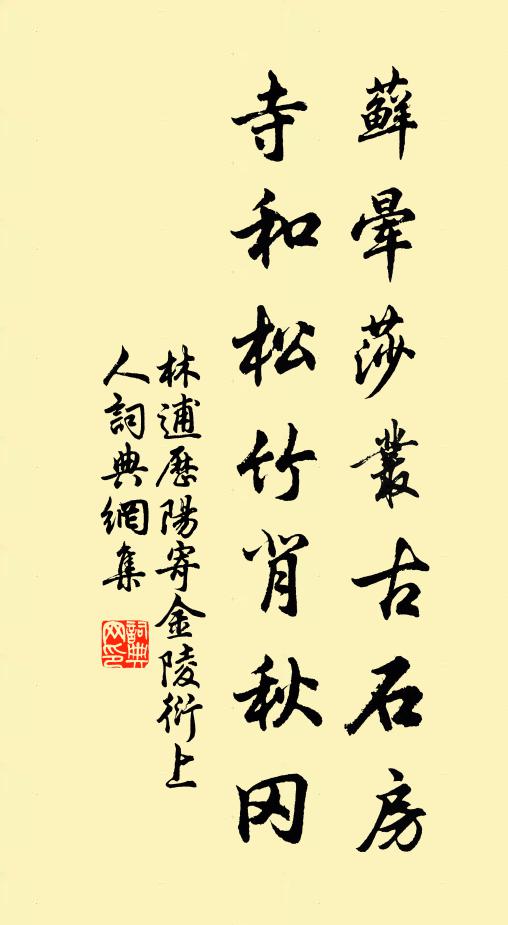 蘚暈莎叢古石房
寺和松竹背秋冈
林逋歷陽寄金陵衍上
人詞典網集
詞典
网印